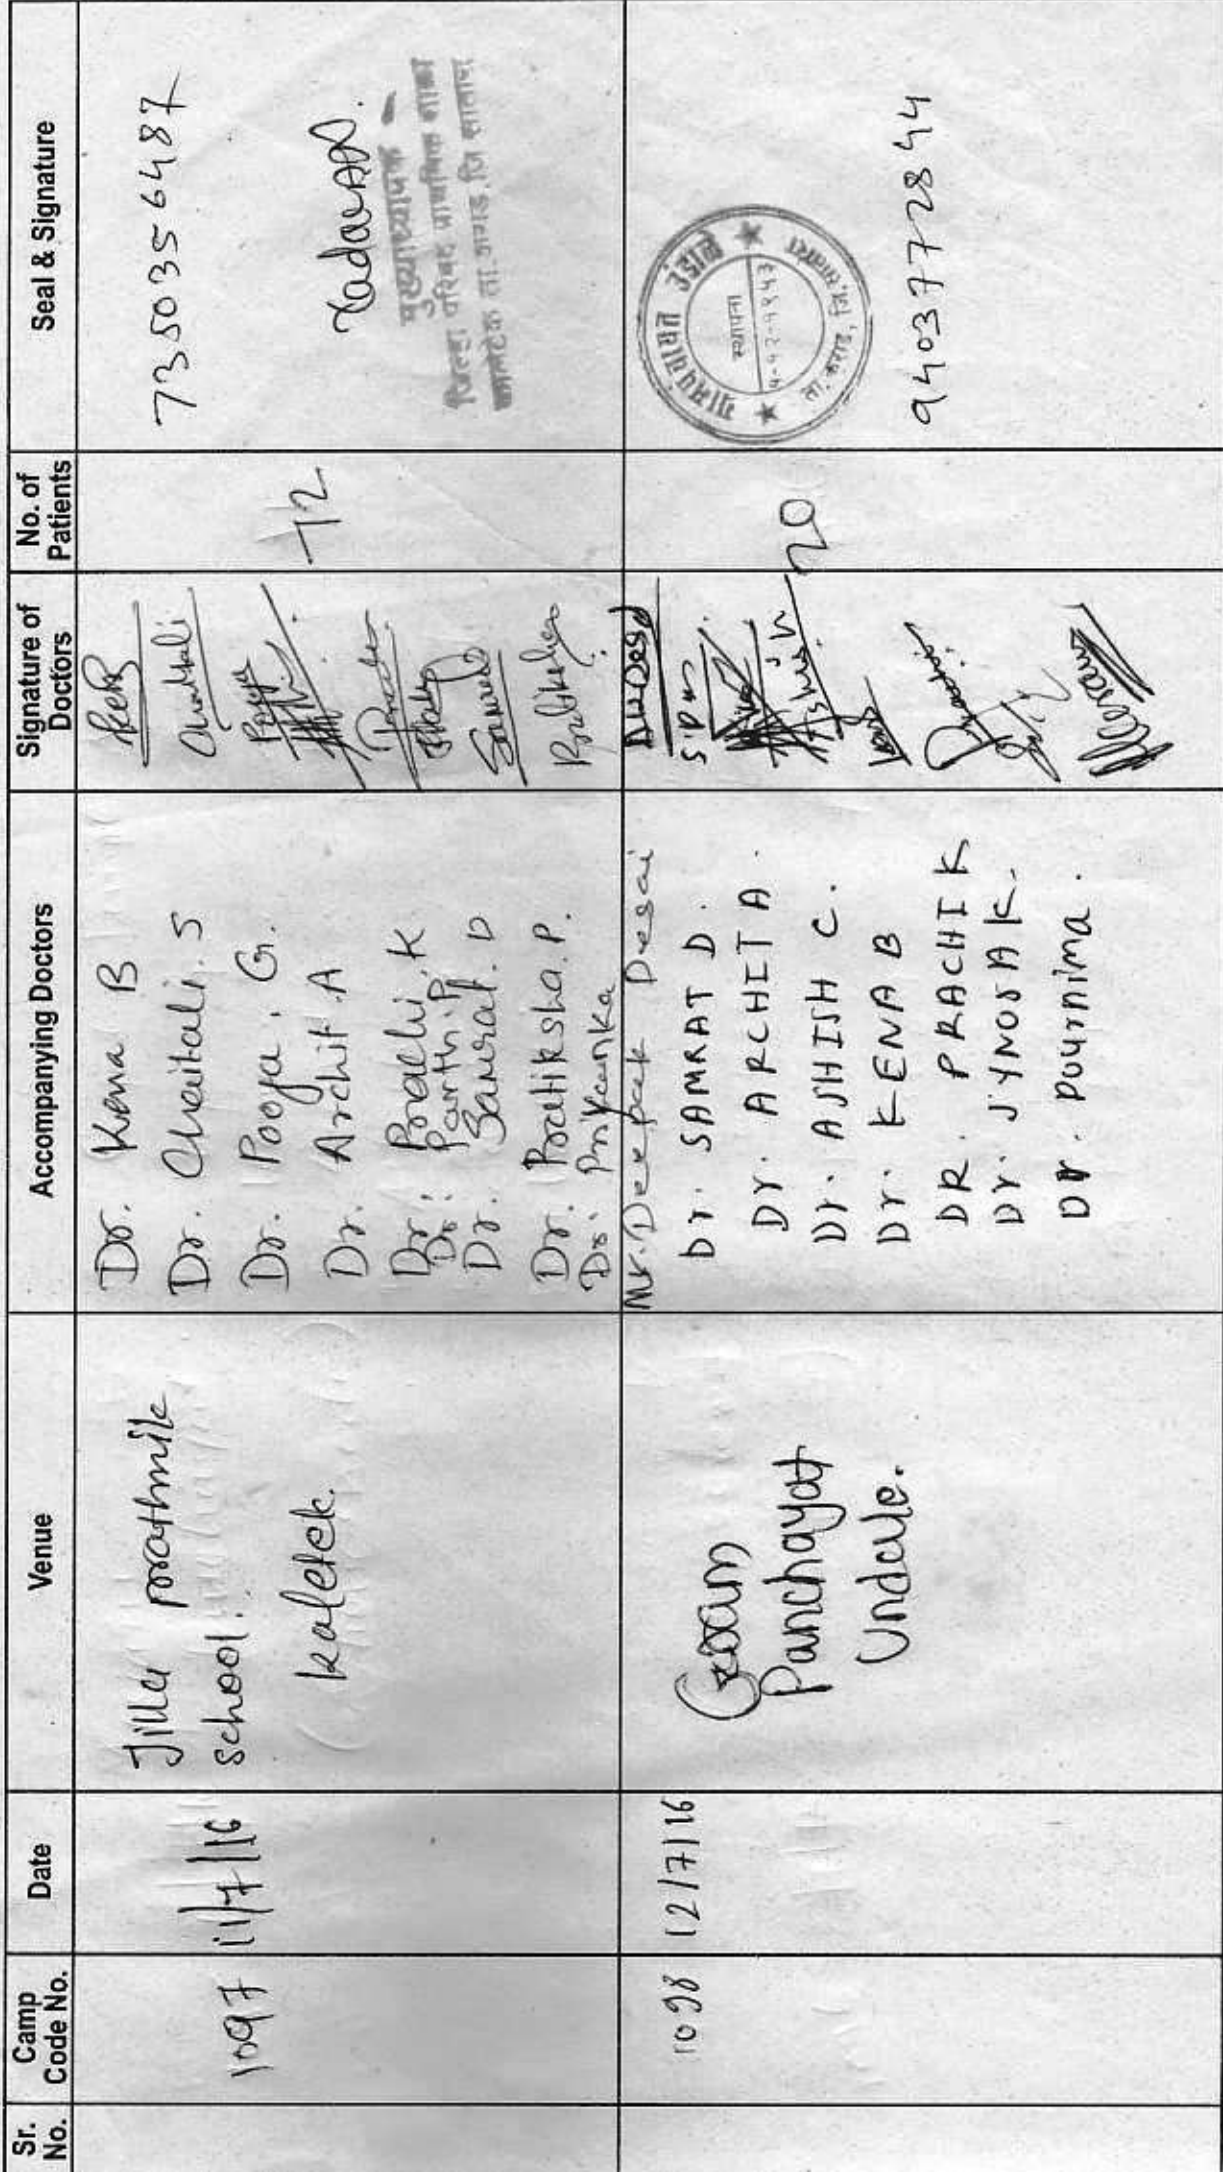 Sr. No.
Camp Code No.
Date
Venue
Accompanying Doctors
Signature of Doctors
No. of Patients
Seal & Signature
1097
11/7/16
Jilla prathmik
school.
kaletek.
Dr. Kena B
Dr. Chaitali. S
Dr. Pooja. G.
Dr. Archit. A
Dr. Prachi. K
Dr. Parth. P
Dr. Samrat. D
Dr. Pratiksha. P.
Dr. Priyanka
Chaitali
Pooja
Samrat
Pratiksha
72
7350356487
मुख्याध्यापक
जिल्हा परिषद प्राथमिक शाळा
कालेटेक ता. कराड. जि सातारा
1098
12/7/16
Gram
Panchayat
Undale.
Mr. Deepak Desai
Dr. SAMRAT D.
Dr. ARCHIT A.
Dr. ASHISH C.
Dr. KENA B
DR. PRACHI K
Dr. JYNOSA K.
Dr. Pournima.
Ashish
20
ग्रामपंचायत
स्थापना
ता. कराड, जि. सातारा
9403772844